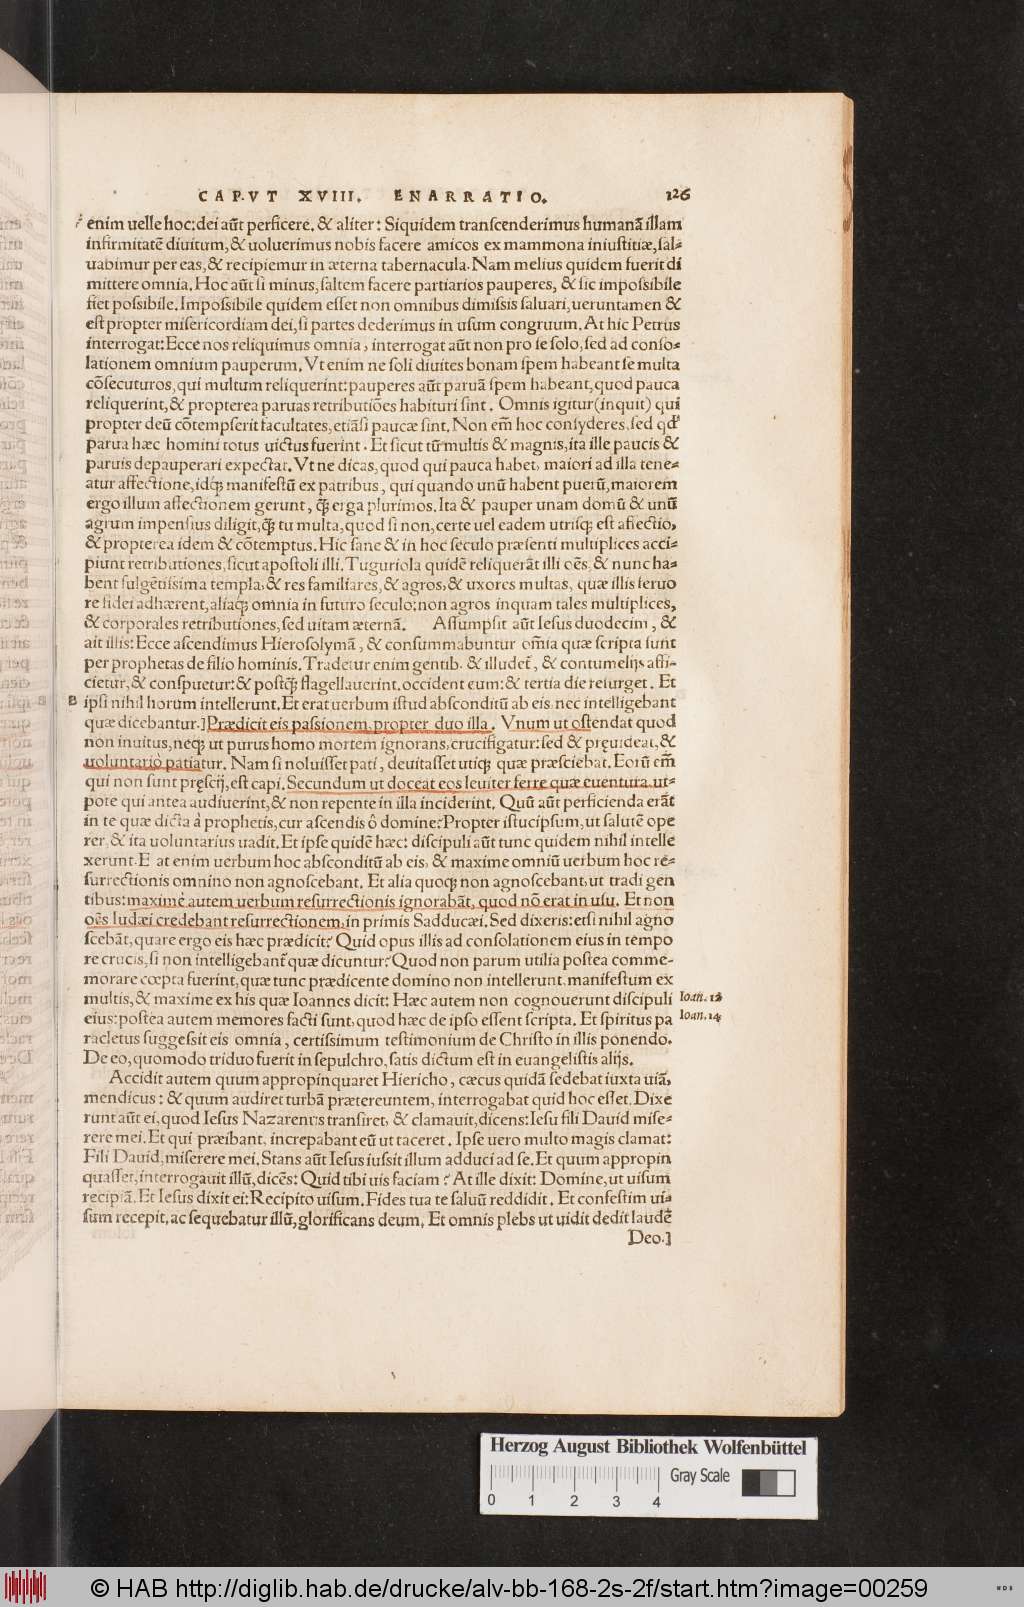 CAPVT XVIII. ENARRATIO. 126
enim uelle hoc: dei aũt perficere. & aliter: Siquidem transcenderimus humanã illam
infirmitatẽ diuitum, & uoluerimus nobis facere amicos ex mammona iniustitiæ, sal-
uabimur per eas, & recipiemur in æterna tabernacula. Nam melius quidem fuerit di
mittere omnia. Hoc aũt si minus, saltem facere partiarios pauperes, & sic impossibile
fiet possibile. Impossibile quidem esset non omnibus dimissis saluari, ueruntamen &
est propter misericordiam dei, si partes dederimus in usum congruum. At hic Petrus
interrogat: Ecce nos reliquimus omnia, interrogat aũt non pro se solo, sed ad conso-
lationem omnium pauperum. Vt enim ne soli diuites bonam spem habeant se multa
cõsecuturos, qui multum reliquerint: pauperes aũt paruã spem habeant, quod pauca
reliquerint, & propterea paruas retributiões habituri sint. Omnis igitur (inquit) qui
propter deũ cõtempserit facultates, etiãsi paucæ sint. Non em̃ hoc consyderes, sed qd'
parua hæc homini totus uictus fuerint. Et sicut tu multis & magnis, ita ille paucis &
paruis depauperari expectat. Vt ne dicas, quod qui pauca habet, maiori ad illa tene-
atur affectione, idq; manifestũ ex patribus, qui quando unũ habent puerũ, maiorem
ergo illum affectionem gerunt, q̃ erga plurimos. Ita & pauper unam domũ & unũ
agrum impensius diligit, q̃ tu multa, quod si non, certe uel eadem utrisq; est affectio,
& propterea idem & cõtemptus. Hic sane & in hoc seculo præsenti multiplices acci-
piunt retributiones, sicut apostoli illi. Tuguriola quidẽ reliquerãt illi oẽs, & nunc ha-
bent fulgẽtissima templa, & res familiares, & agros, & uxores multas, quæ illis feruo
re fidei adhærent, aliaq; omnia in futuro seculo: non agros inquam tales multiplices,
& corporales retributiones, sed uitam æternã. Assumpsit aũt Iesus duodecim, &
ait illis: Ecce ascendimus Hierosolymã, & consummabuntur om̃ia quæ scripta sunt
per prophetas de filio hominis. Tradetur enim gentib. & illudet̃, & contumelijs affi-
cietur, & conspuetur: & postq̃ flagellauerint, occident eum: & tertia die resurget. Et
B ipsi nihil horum intellerunt. Et erat uerbum istud absconditũ ab eis, nec intelligebant
quæ dicebantur.] Prædicit eis passionem, propter duo illa. Vnum ut ostendat quod
non inuitus, neq; ut purus homo mortem ignorans, crucifigatur: sed & pręuideat, &
uoluntariò patiatur. Nam si noluisset pati, deuitasset utiq; quæ præsciebat. Eorũ em̃
qui non sunt pręscij, est capi. Secundum ut doceat eos leuiter ferre quæ euentura, ut-
pote qui antea audiuerint, & non repente in illa inciderint. Quũ aũt perficienda erãt
in te quæ dicta à prophetis, cur ascendis ô domine? Propter istucipsum, ut salutẽ ope
rer, & ita uoluntarius uadit. Et ipse quidẽ hæc: discipuli aũt tunc quidem nihil intelle
xerunt. E at enim uerbum hoc absconditũ ab eis, & maxime omniũ uerbum hoc re-
surrectionis omnino non agnoscebant. Et alia quoq; non agnoscebant, ut tradi gen
tibus: maximè autem uerbum resurrectionis ignorabãt, quod nõ erat in usu. Et non
oẽs Iudæi credebant resurrectionem, in primis Sadducæi. Sed dixeris: etsi nihil agno
scebãt, quare ergo eis hæc prædicit? Quid opus illis ad consolationem eius in tempo
re crucis, si non intelligebant̃ quæ dicuntur? Quod non parum utilia postea comme-
morare cœpta fuerint, quæ tunc prædicente domino non intellerunt. manifestum ex
multis, & maxime ex his quæ Ioannes dicit: Hæc autem non cognouerunt discipuli Ioan. 12
eius: postea autem memores facti sunt, quod hæc de ipso essent scripta. Et spiritus pa Ioan. 14
racletus suggessit eis omnia, certissimum testimonium de Christo in illis ponendo.
De eo, quomodo triduo fuerit in sepulchro, satis dictum est in euangelistis alijs.
Accidit autem quum appropinquaret Hiericho, cæcus quidã sedebat iuxta uiã,
mendicus: & quum audiret turbã prætereuntem, interrogabat quid hoc esset. Dixe
runt aũt ei, quod Iesus Nazarenus transiret, & clamauit, dicens: Iesu fili Dauid mise-
rere mei. Et qui præibant, increpabant eũ ut taceret. Ipse uero multo magis clamat:
Fili Dauid, miserere mei. Stans aũt Iesus iussit illum adduci ad se. Et quum appropin
quasset, interrogauit illũ, dicẽs: Quid tibi uis faciam? At ille dixit: Domine, ut uisum
recipiã. Et Iesus dixit ei: Recipito uisum. Fides tua te saluũ reddidit. Et confestim ui-
sum recepit, ac sequebatur illũ, glorificans deum. Et omnis plebs ut uidit dedit laudẽ
Deo.]
Herzog August Bibliothek Wolfenbüttel
Gray Scale
0 1 2 3 4
© HAB http://diglib.hab.de/drucke/alv-bb-168-2s-2f/start.htm?image=00259